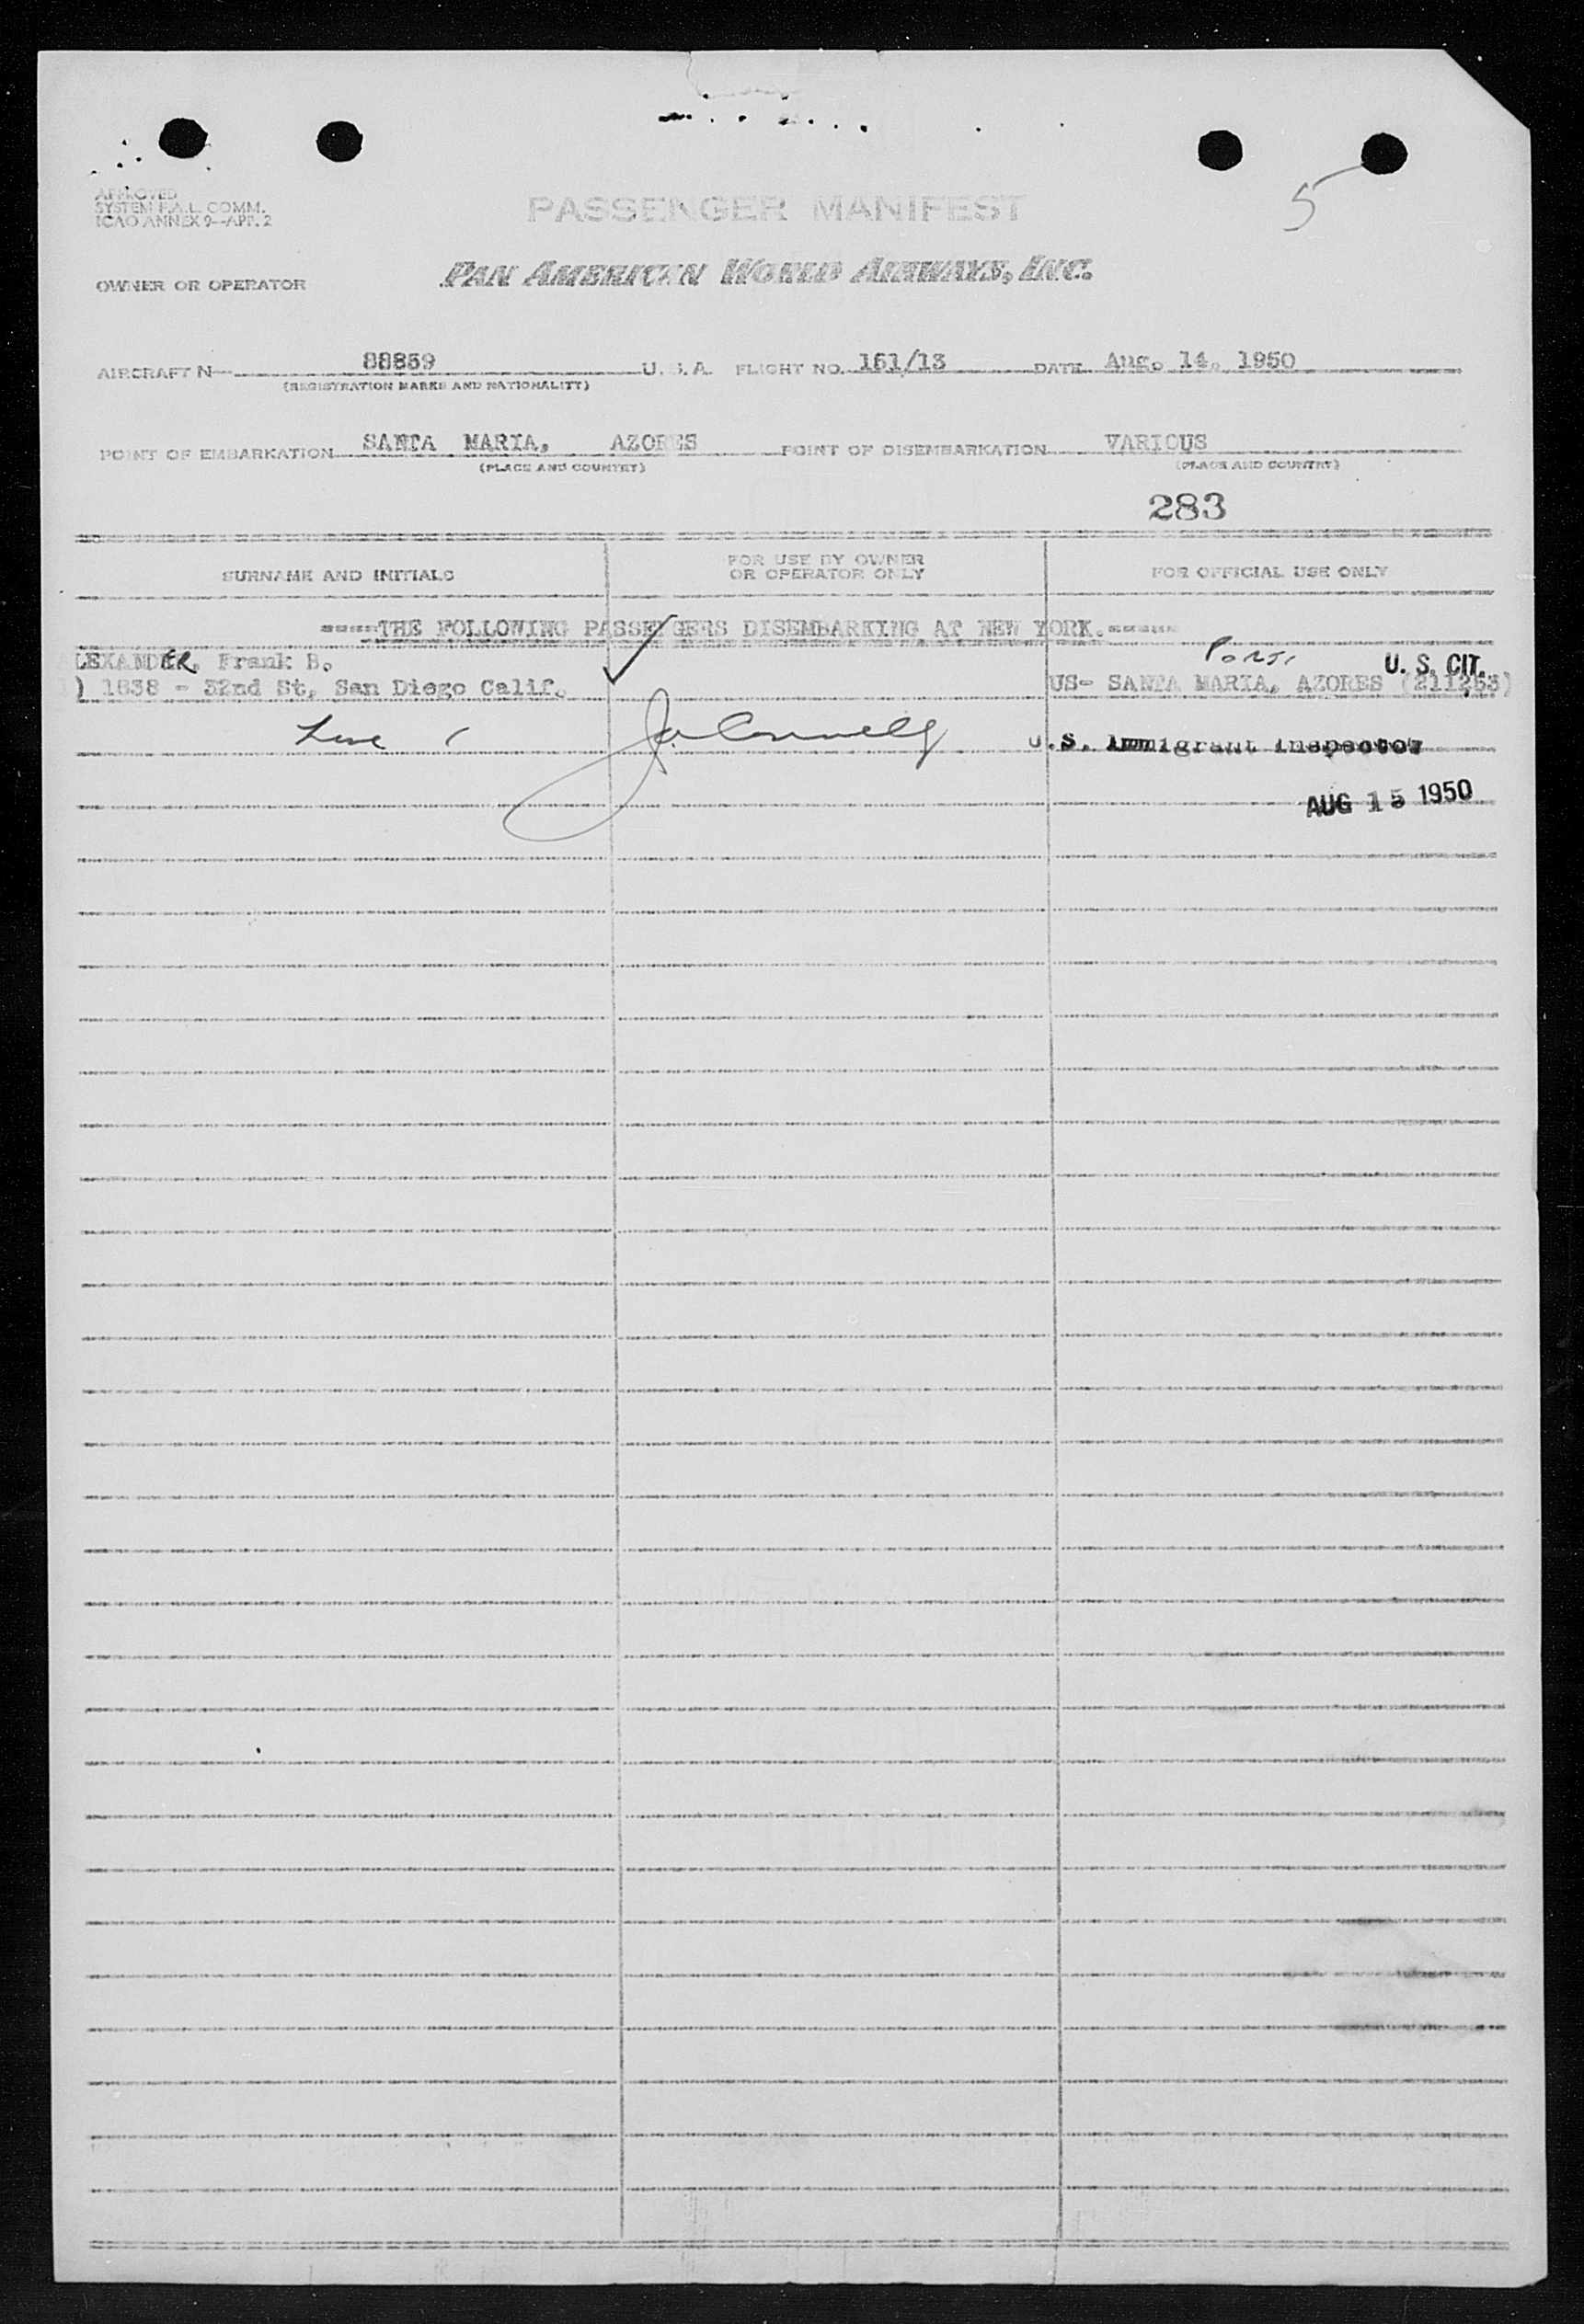 APPROVED
SYSTEM F.A.L. COMM.
ICAO ANNEX 9—APP. 2
PASSENGER MANIFEST
5
OWNER OR OPERATOR
PAN AMERICAN WORLD AIRWAYS, INC.
AIRCRAFT N— 88859 U. S. A. FLIGHT NO. 161/13 DATE Aug. 14, 1950
(REGISTRATION MARKS AND NATIONALITY)
POINT OF EMBARKATION SANTA MARIA, AZORES POINT OF DISEMBARKATION VARIOUS
(PLACE AND COUNTRY) (PLACE AND COUNTRY)
283
SURNAME AND INITIALS FOR USE BY OWNER OR OPERATOR ONLY FOR OFFICIAL USE ONLY
----THE FOLLOWING PASSENGERS DISEMBARKING AT NEW YORK.-----
LEXANDER, Frank B. U. S. CIT.
) 1838 - 32nd St, San Diego Calif. US- SANTA MARIA, AZORES (211253)
U.S. Immigrant Inspector
AUG 15 1950